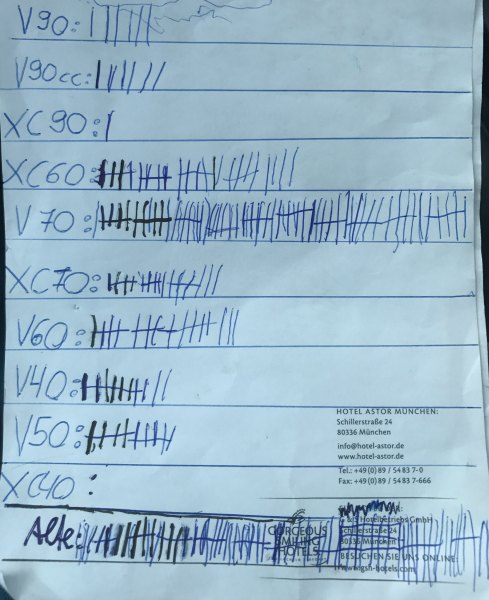 V90:
V90cc:
XC90:
XC60:
V70:
XC70:
V60:
V40:
HOTEL ASTOR MÜNCHEN:
Schillerstraße 24
80336 München
info@hotel-astor.de
www.hotel-astor.de
V50:
Tel.: +49 (0) 89 / 54 83 7-0
Fax: +49 (0) 89 / 54 83 7-666
XC40:
Alte:
GORGEOUS
SMILING
HOTELS
Hotelbetriebs GmbH
80336 München
BESUCHEN SIE UNS ONLINE:
www.gsh-hotels.com